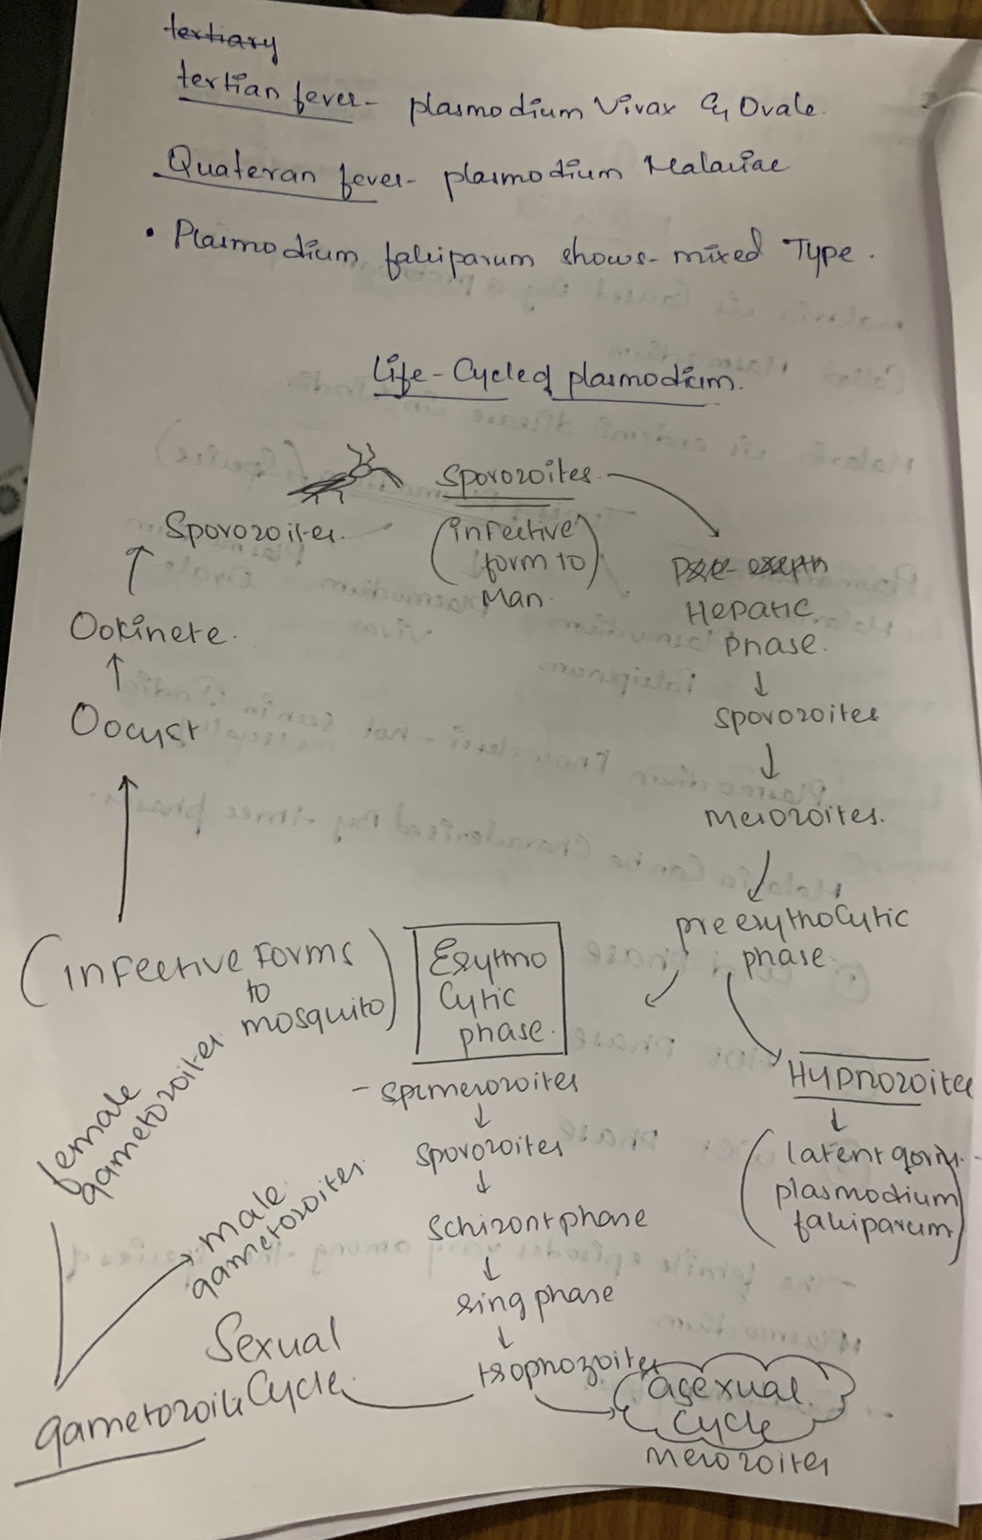 tertiary
tertian fever- plasmodium Vivax & Ovale.
Quateran fever- plasmodium Malariae
• Plasmodium falciparum shows- mixed Type.
Life-Cycle of plasmodium.
Sporozoites
(infective form to Man.)
Hepatic phase.
↓
Sporozoites
↓
merozoites.
↓
pre erythocytic phase
Hypnozoites
↓
(latent form.
plasmodium
falciparum)
Erythro
Cytic
phase.
-
↓
Sporozoites
↓
Schizont phase
↓
ring phase
↓
trophozoites
asexual
cycle
merozoites
Sexual
Cycle
gametozoite
male
gametozoites
female
gametozoites
(infective forms
to
mosquito)
Oocyst
↑
Ookinete.
↑
Sporozoites.